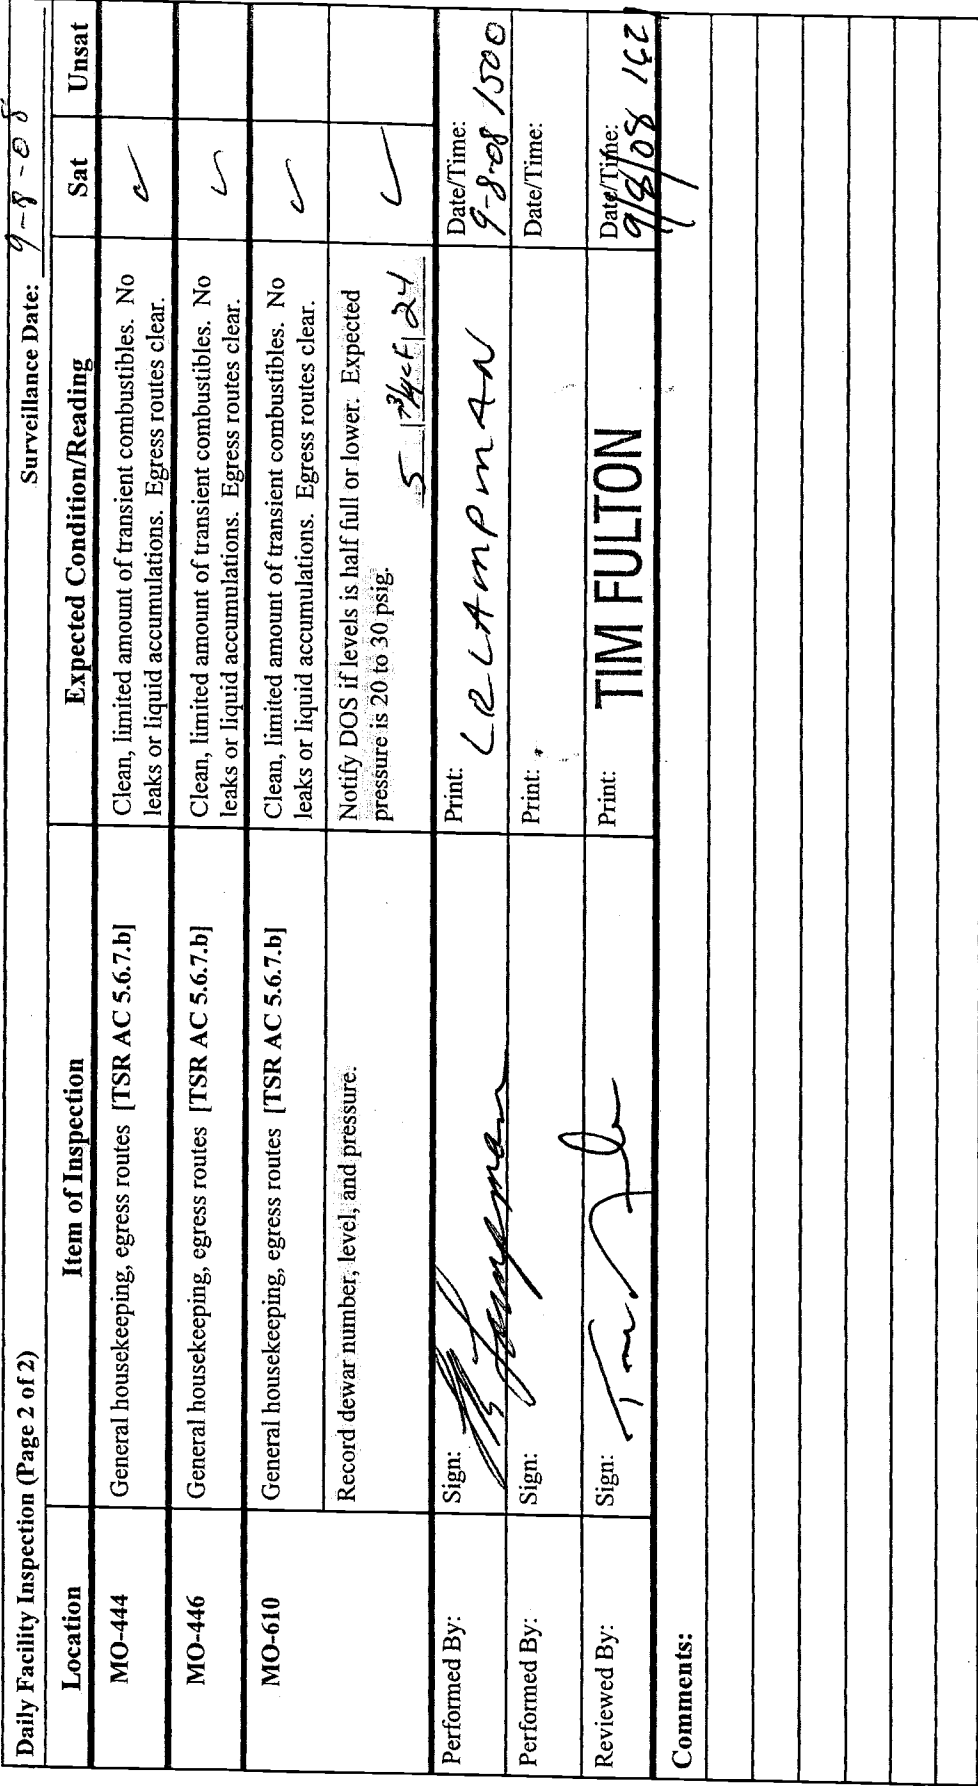 Daily Facility Inspection (Page 2 of 2) Surveillance Date: 9-8-08
Location Item of Inspection Expected Condition/Reading Sat Unsat
MO-444 General housekeeping, egress routes [TSR AC 5.6.7.b] Clean, limited amount of transient combustibles. No ✓
leaks or liquid accumulations. Egress routes clear.
MO-446 General housekeeping, egress routes [TSR AC 5.6.7.b] Clean, limited amount of transient combustibles. No ✓
leaks or liquid accumulations. Egress routes clear.
MO-610 General housekeeping, egress routes [TSR AC 5.6.7.b] Clean, limited amount of transient combustibles. No ✓
leaks or liquid accumulations. Egress routes clear.
Record dewar number, level, and pressure. Notify DOS if levels is half full or lower. Expected ✓
pressure is 20 to 30 psig. 5 | 3/4 | 24
Performed By: Sign: Print: LR LAMPMAN Date/Time: 9-8-08 1500
Performed By: Sign: Print: Date/Time:
Reviewed By: Sign: Print: TIM FULTON Date/Time: 9/8/08 162
Comments: